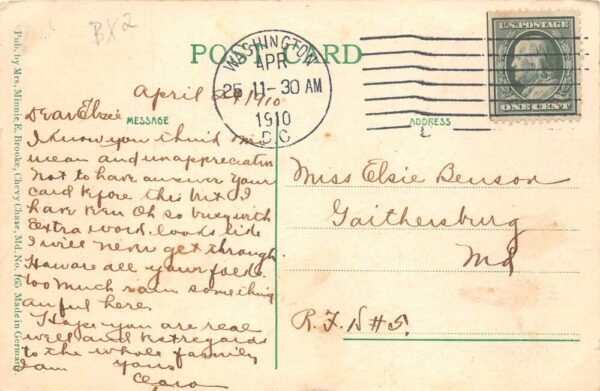 BX2
POST CARD
WASHINGTON
APR
25 11-30 AM
1910
D.C
U.S. POSTAGE
ONE CENT
April 24 1910
Dear Elsie
MESSAGE
I know you think me
mean and unappreciative
not to have answer your
card before this but I
have been Oh so busy with
Extra work. looks like
I will never get through
How are all your folks.
too much rain something
awful here.
I hope you are real
well and best regards
to the whole family
I am yours
Clara
ADDRESS
Miss Elsie Benson
Gaithersburg
Md
R.F.D #5.
Pub. by Mrs. Minnie E. Brooke, Chevy Chase, Md. No. 165 Made in Germany.